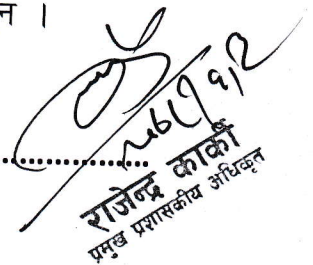 न ।
राजेन्द्र कार्की
प्रमुख प्रशासकीय अधिकृत